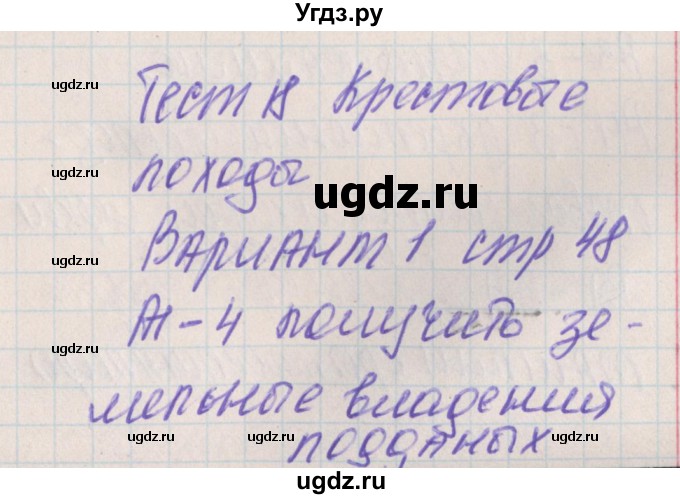 Угдз.ру
Тест 18 Крестовые
походы
Вариант 1 стр 48
А1-4 получить зе-
мельные владения
подданных
ugdz.ru
ugdz.ru
ugdz.ru
ugdz.ru
ugdz.ru
ugdz.ru
ugdz.ru
ugdz.ru
ugdz.ru
ugdz.ru